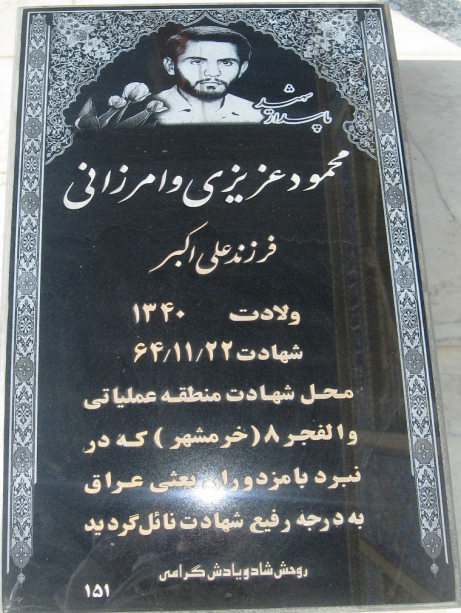 شهید
پاسدار
محمود عزیزی وامرزانی
فرزند علی اکبر
ولادت ۱۳۴۰
شهادت ۶۴/۱۱/۲۲
محل شهادت منطقه عملیاتی
والفجر ۸ (خرمشهر) که در
نبرد با مزدوران بعثی عراق
به درجه رفیع شهادت نائل گردید
روحش شاد و یادش گرامی
۱۵۱